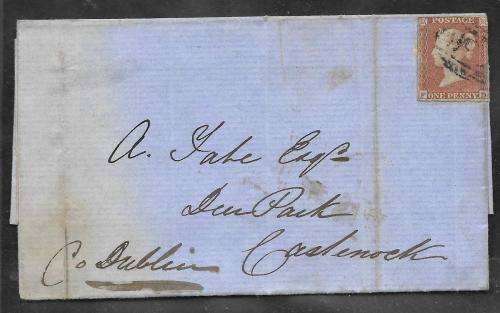 POSTAGE
ONE PENNY
A. Tate Esqr
Deer Park
Castlenock
Co Dublin